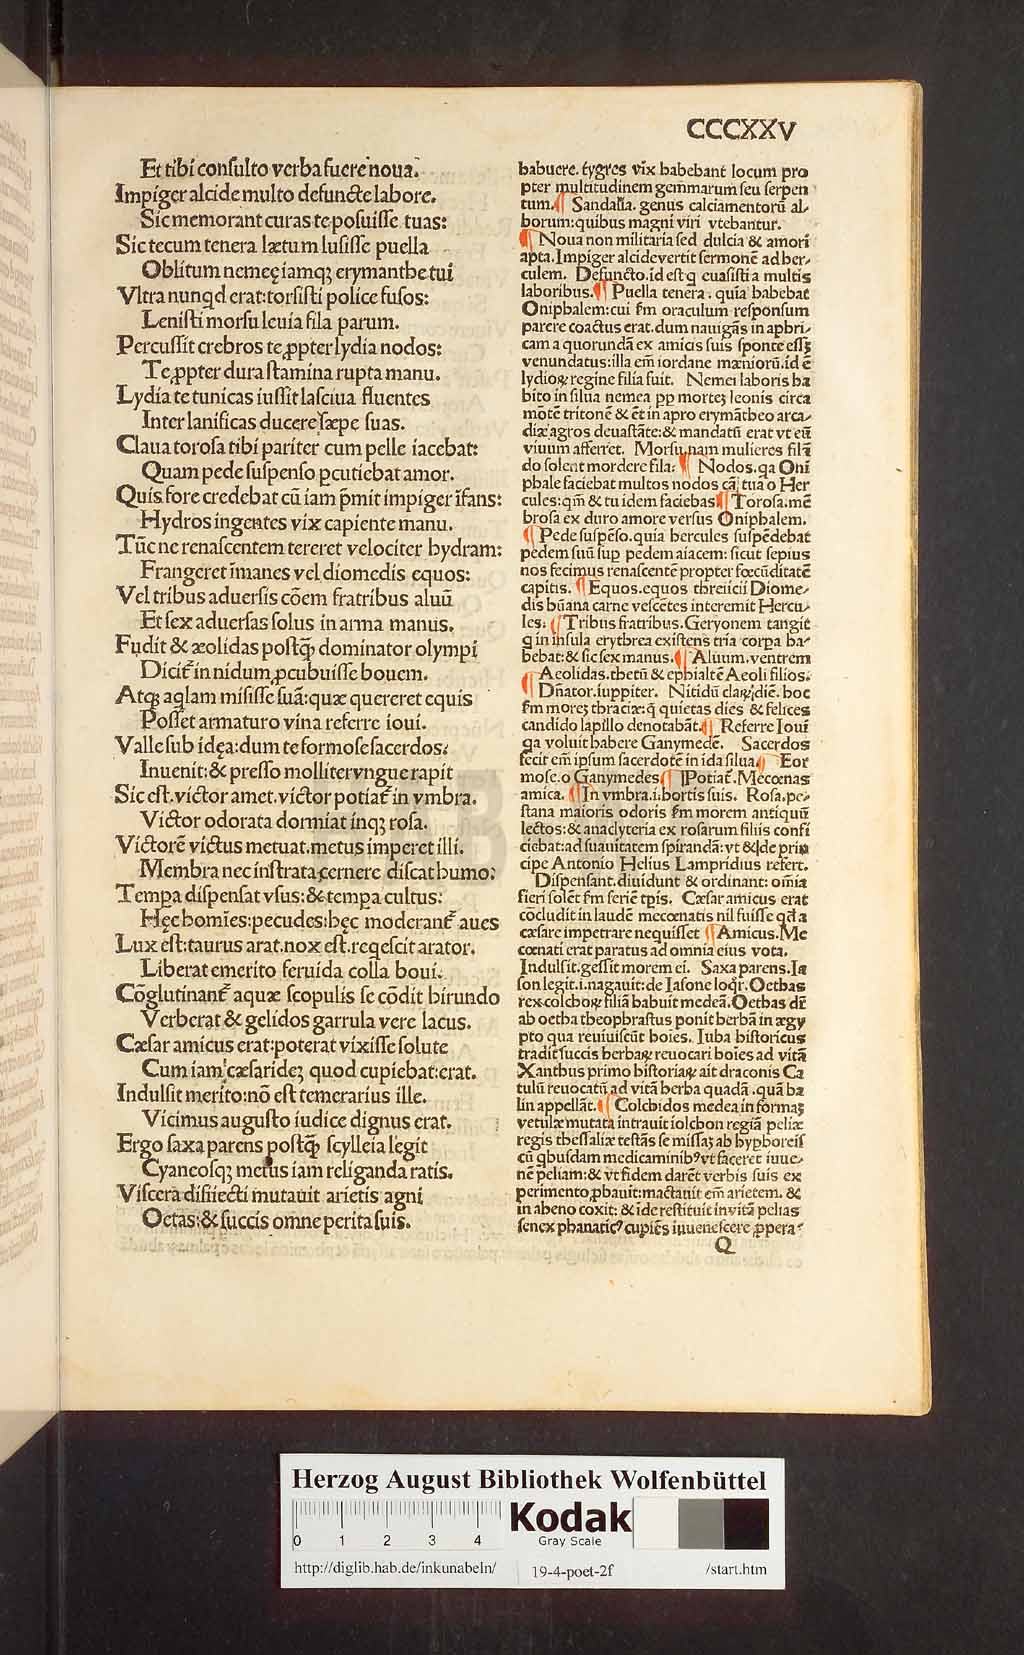 CCCXXV
Et tibi consulto verba fuere noua.
Impiger alcide multo defuncte labore.
Sic memorant curas te posuisse tuas:
Sic tecum tenera lætum lusisse puella
Oblitum nemeę iamqꝫ erymanthe tui
Vltra nunqd erat: torsisti police fusos:
Lenisti morsu leuia fila parum.
Percussit crebros te ꝓpter lydia nodos:
Te ꝓpter dura stamina rupta manu.
Lydia te tunicas iussit lasciua fluentes
Inter lanificas ducere sæpe suas.
Claua torosa tibi pariter cum pelle iacebat:
Quam pede suspenso ꝑcutiebat amor.
Quis fore credebat cū iam p̄mit impiger īfans:
Hydros ingentes vix capiente manu.
Tūc ne renascentem tereret velociter hydram:
Frangeret īmanes vel diomedis equos:
Vel tribus aduersis cōem fratribus aluū
Et sex aduersas solus in arma manus.
Fudit & æolidas postq̄ꝫ dominator olympi
Dicit᷑ in nidum ꝓcubuisse bouem.
Atqꝫ aq̄lam misisse suā: quæ quereret equis
Posset armaturo vina referre ioui.
Valle sub idęa: dum te formose sacerdos:
Inuenit: & presso molliter vngue rapit
Sic est. victor amet. victor potiat᷑ in vmbra.
Victor odorata dormiat inqꝫ rosa.
Victorē victus metuat. metus imperet illi.
Membra nec instrata cernere discat humo:
Tempa dispensat vsus: & tempa cultus:
Hęc homīes: pecudes: hęc moderant᷑ aues
Lux est: taurus arat. nox est. reqescit arator.
Liberat emerito feruida colla boui.
Cōglutinant᷑ aquæ scopulis se cōdit hirundo
Verberat & gelidos garrula vere lacus.
Cæsar amicus erat: poterat vixisse solute
Cum iam cæsar ideꝫ quod cupiebat: erat.
Indulsit merito: nō est temerarius ille.
Vicimus augusto iudice dignus erat.
Ergo saxa parens postq̄ꝫ scylleia legit
Cyaneosqꝫ metus iam religanda ratis.
Viscera disiiecti mutauit arietis agni
Oetas: & succis omne perita suis.
habuere. tygres vix habebant locum pro
pter multitudinem gemmarum seu serpen
tum. ¶ Sandalia. genus calciamentorū al-
borum: quibus magni viri vtebantur.
¶ Noua non militaria sed dulcia & amori
apta. Impiger alcide vertit sermonē ad her-
culem. Defuncto. id est q euasisti a multis
laboribus. ¶ Puella tenera. quia habebat
Oniphalem: cui s̄m oraculum responsum
parere coactus erat. dum nauigās in aphri-
cam a quorundā ex amicis suis sponte esset
venundatus: illa em̄ iordane mæniorū. id ē
lydioꝝ regine filia fuit. Nemei laboris ha
bito in silua nemea pp morteꝫ leonis circa
mōtē tritonē & ēt in apro erymātheo arca-
diæ agros deuastāte: & mandatū erat vt eū
viuum afferret. Morsu. nam mulieres filā
do solent mordere fila: ¶ Nodos. qa Oni
phale faciebat multos nodos cā tua o Her
cules: qm̄ & tu idem faciebas ¶ Torosa. mē
brosa ex duro amore versus Oniphalem.
¶ Pede suspēso. quia hercules suspēdebat
pedem suū sup pedem aiacem: sicut sepius
nos fecimus renascentē propter fœcūditatē
capitis. ¶ Equos. equos threiicii Diome-
dis hūana carne vescētes interemit Hercu-
les: ¶ Tribus fratribus. Geryonem tangit
q in insula erythrea existens tria corpa ha-
bebat: & sic sex manus. ¶ Aluum. ventrem
¶ Aeolidas. thetū & ephialtē Aeoli filios.
¶ Dn̄ator. iuppiter. Nitidū claꝝ diē. hoc
s̄m moreꝫ thraciæ: q̄ quietas dies & felices
candido lapillo denotabāt. ¶ Referre Ioui
qa voluit habere Ganymedē. Sacerdos
fecit em̄ ipsum sacerdotē in ida silua ¶ For
mose. o Ganymedes ¶ Potiat᷑. Mecœnas
amica. ¶ In vmbra. i. hortis suis. Rosa. pe-
stana maioris odoris s̄m morem antiquū
lectos: & anaclyteria ex rosarum filiis confi
ciebat: ad suauitatem spirandā: vt & de prin
cipe Antonio Helius Lampridius refert.
Dispensant. diuidunt & ordinant: om̄ia
fieri solēt s̄m seriē tp̄is. Cæsar amicus erat
cōcludit in laudē mecœnatis nil fuisse qd a
cæsare impetrare nequisset ¶ Amicus. Me
cœnati erat paratus ad omnia eius vota.
Indulsit. gessit morem ei. Saxa parens. Ia
son legit. i. nauigauit: de Iasone loqr̄. Oethas
rex colchoꝝ filiā habuit medeā. Oethas dr̄
ab oetha theophrastus ponit herbā in ægy
pto qua reuiuiscūt hoīes. Iuba historicus
tradit succis herbaꝝ reuocari hoīes ad vitā
Xanthus primo historiaꝝ ait draconis Ca
tulū reuocatū ad vitā herba quadā. quā ba
lin appellāt. ¶ Colchidos medea in formaꝫ
vetulæ mutata intrauit iolchon regiā peliæ
regis thessaliæ testās se missaꝫ ab hyphoreis
cū qbusdam medicaminibꝰ vt faceret iuue-
nē peliam: & vt fidem darēt verbis suis ex
perimento ꝓbauit: mactauit em̄ arietem. &
in aheno coxit: & īde restituit inuitā pelias
senex phanaticꝰ cupiēs iuuenescere ꝓpera-
Q
HAB
Herzog August Bibliothek Wolfenbüttel
0 1 2 3 4
Kodak
Gray Scale
http://diglib.hab.de/inkunabeln/ 19-4-poet-2f /start.htm